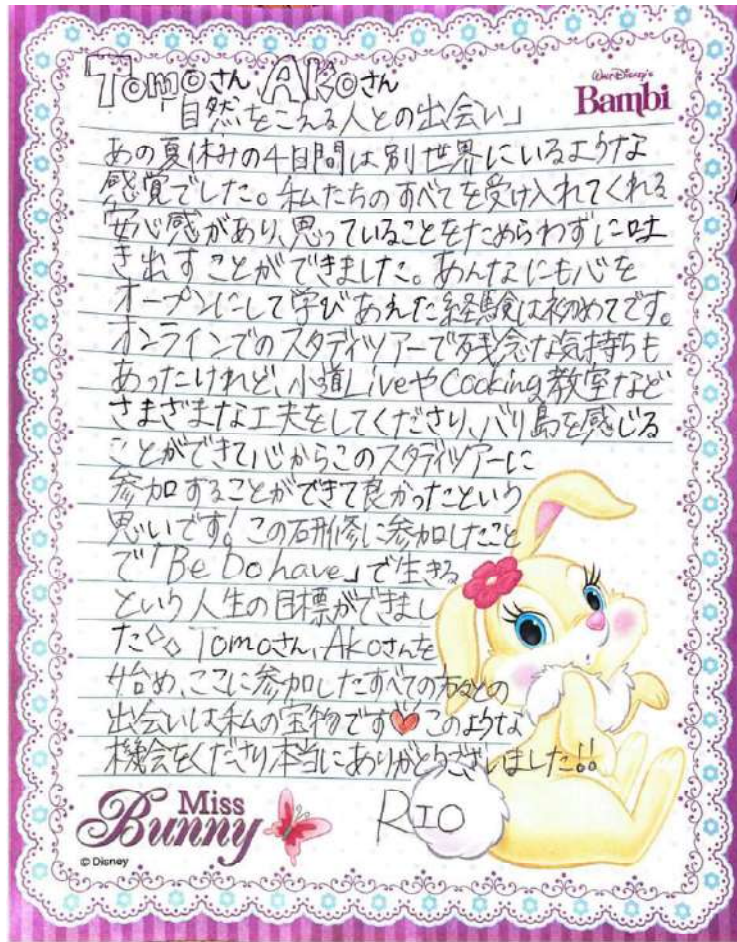 Tomoさん Akoさん
Walt Disney's
Bambi
「自然をこえる人との出会い」
あの夏休みの4日間は別世界にいるような
感覚でした。私たちのすべてを受け入れてくれる
安心感があり、思っていることをためらわずに吐
き出すことができました。あんなにも心を
オープンにして学びあえた経験は初めてです。
オンラインでのスタディツアーで残念な気持ちも
あったけれど、小道LiveやCooking教室など
さまざまな工夫をしてくださり、バリ島を感じる
ことができて心からこのスタディツアーに
参加することができて良かったという
思いです!この研修に参加したこと
で「Be Do have」で生きる
という人生の目標ができまし
た。Tomoさん、Akoさんを
始め、ここに参加したすべての方々との
出会いは私の宝物です♥このような
機会をくださり本当にありがとうございました!!
RIO
Miss
Bunny
© Disney